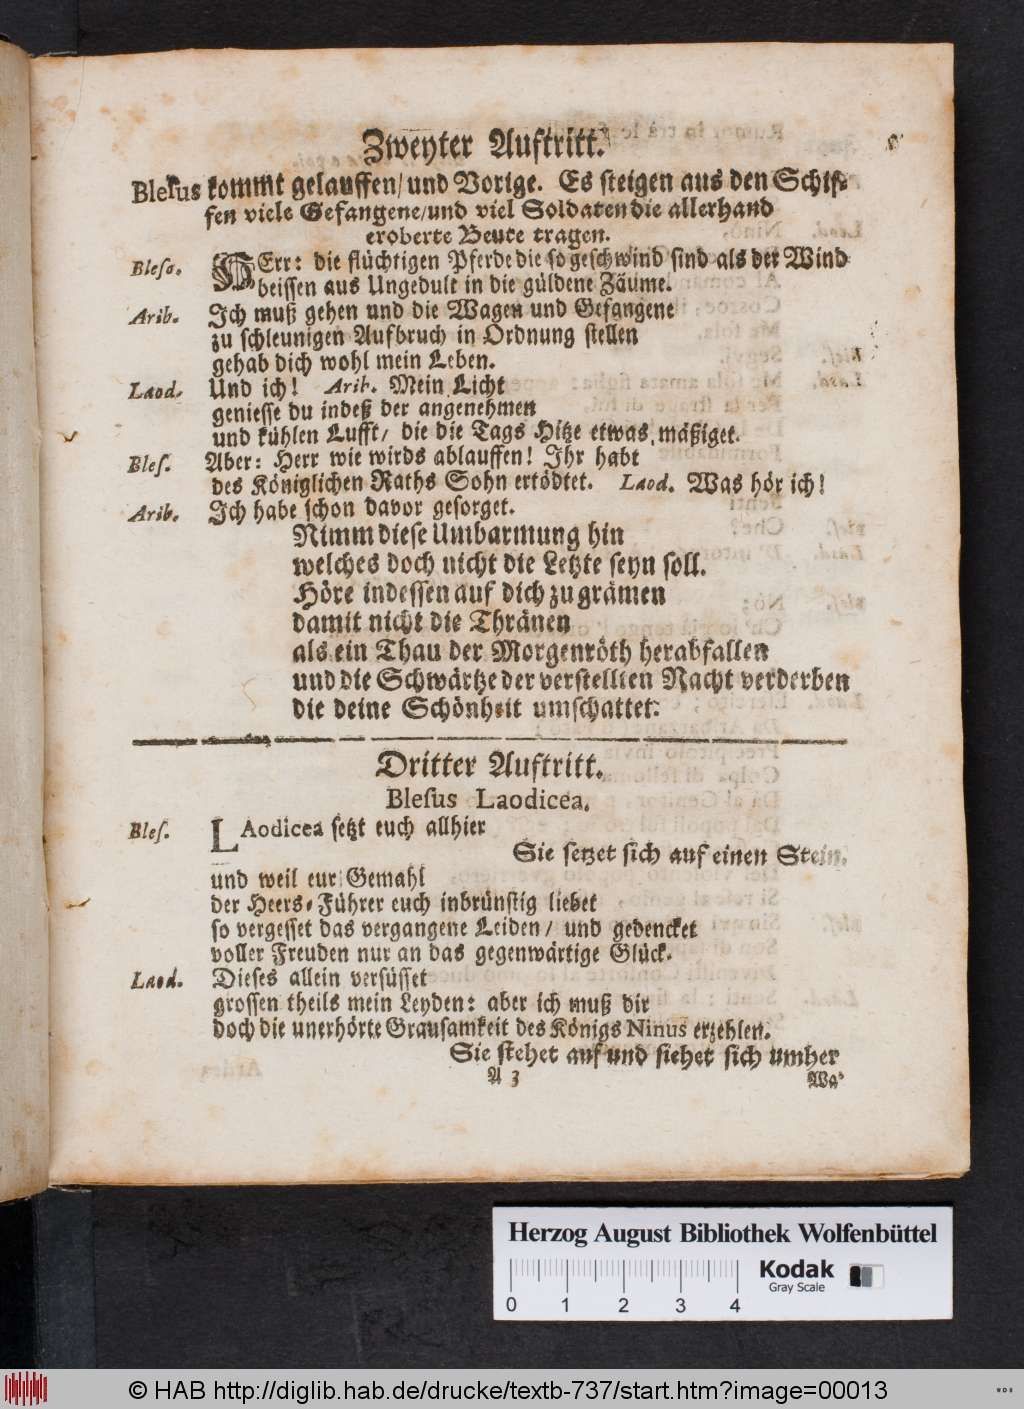 Zweyter Auftritt.
Blesus kommt gelauffen/ und Vorige. Es steigen aus den Schif-
fen viele Gefangene/und viel Soldaten die allerhand
eroberte Beute tragen.
Bleso. HErr: die flüchtigen Pferde die so geschwind sind als der Wind
beissen aus Ungedult in die güldene Zäume.
Arib. Ich muß gehen und die Wagen und Gefangene
zu schleunigen Aufbruch in Ordnung stellen
gehab dich wohl mein Leben.
Laod. Und ich! Arib. Mein Licht
geniesse du indeß der angenehmen
und kühlen Lufft/ die die Tags Hitze etwas mäßiget.
Bles. Aber: Herr wie wirds ablauffen! Ihr habt
des Königlichen Raths Sohn ertödtet. Laod. Was hör ich!
Arib. Ich habe schon davor gesorget.
Nimm diese Umbarmung hin
welches doch nicht die Letzte seyn soll.
Höre indessen auf dich zu grämen
damit nicht die Thränen
als ein Thau der Morgenröth herabfallen
und die Schwärtze der verstellten Nacht verderben
die deine Schönheit umschattet.
Dritter Auftritt.
Blesus Laodicea.
Bles. LAodicea setzt euch allhier
Sie setzet sich auf einen Stein.
und weil eur Gemahl
der Heers-Führer euch inbrünstig liebet
so vergesset das vergangene Leiden/ und gedencket
voller Freuden nur an das gegenwärtige Glück.
Laod. Dieses allein versüsset
grossen theils mein Leyden: aber ich muß dir
doch die unerhörte Grausamkeit des Königs Ninus erzehlen.
Sie stehet auf und siehet sich umher
A 3 Wa-
Herzog August Bibliothek Wolfenbüttel
Kodak
Gray Scale
0 1 2 3 4
© HAB http://diglib.hab.de/drucke/textb-737/start.htm?image=00013